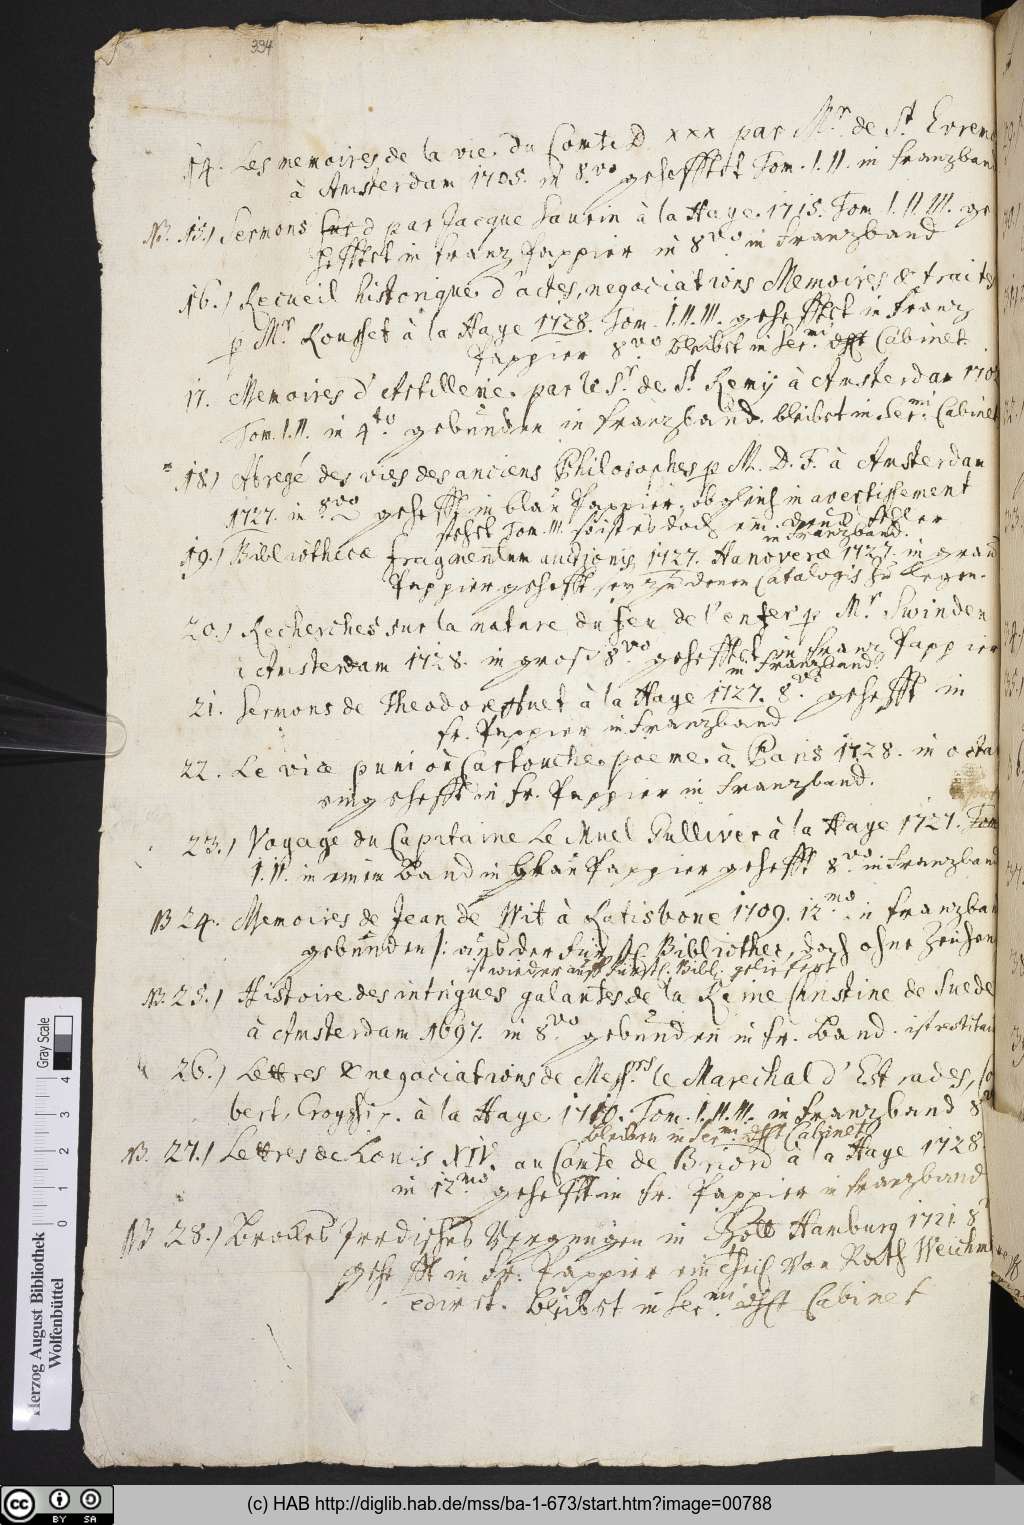 394
14. Les memoires de la vie du Comte D. xxx par Mr. de St. Evrem
à Amsterdam 1705. in 8.vo gehefftet Tom. I. II. in franzband
NB. 15.) Sermons par Jacque Saurin à la Haye. 1715. Tom I. II. III. ge
hefftet in franz Pappier in 8vo in franzband
16.) Recueil historique d'actes, negociations Memoires & traites
p Mr Rousset à la Haye 1728. Tom. I. II. III. gehefftet in franz
Pappier 8vo bleibet in Ser.mi Cabinet.
17. Memoires d'Artillerie. par le Sr. de St. Remij à Amsterdam 170
Tom. I. II. in 4to. gebunden in franzband. bleibet in Ser.mi Cabinet
18.) Abregé des vies des anciens Philosophes p M. D. F. à Amsterdam
1727. in 8vo gehefft in blau Pappier, obgleich in avertissement
stehet Tom. III. so ist es doch ein
in franzband.
19.) Bibliothecae fragmentum auctionis 1727. Hanoverae 1727. in grand
Pappier gehefft, zu denen Catalogis zu legen.
20.) Recherches sur la nature du feu de l'enfer p Mr Swinden
à Amsterdam 1728. in gros 8vo gehefftet in franz Pappier
in franzband
21. Sermons de Theodore Huet à la Haye 1727. 8vo. gehefft in
fr. Pappier in franzband
22. Le vice puni où Cartouche. poeme. à Paris 1728. in octa
gehefft in fr. Pappier in franzband.
23.) Voyage du Capitaine Lemuel Gulliver à la Haye 1727. Tom
I. II. in einem Band in blau Pappier gehefft 8vo. in franzband
NB 24. Memoires de Jean de Wit à Ratisbone 1709. 12mo. in franzban
gebunden /: aus der fürstl. Bibliothec, doch ohne Zeichen
ist wieder auf fürstl. Bibl. geliefert
NB. 25.) Histoire des intrigues galantes de la Reine Christine de Suede
à Amsterdam 1697. in 8vo. gebunden in fr. Band. ist
26.) Lettres & negociations de Mess.rs le Marechal d'Estrades,
bert, Croyssi p. à la Haye 1710. Tom. I. II. III. in franzband 8
bleiben in Ser.mi Cabinet
NB. 27.) Lettres de Louis XIV. au Comte de Briord à la Haye 1728.
in 12mo gehefft in fr. Pappier in franzband
NB 28.) Brockes Irrdisches Vergnügen in Gott Hamburg 1721. 8
gehefft in fr. Pappier ein Theil von Rath Weichm
ediret. bleibet in Ser.mi Cabinet
Herzog August Bibliothek
Wolfenbüttel
0 1 2 3 4
Gray Scale
CC BY SA
(c) HAB http://diglib.hab.de/mss/ba-1-673/start.htm?image=00788